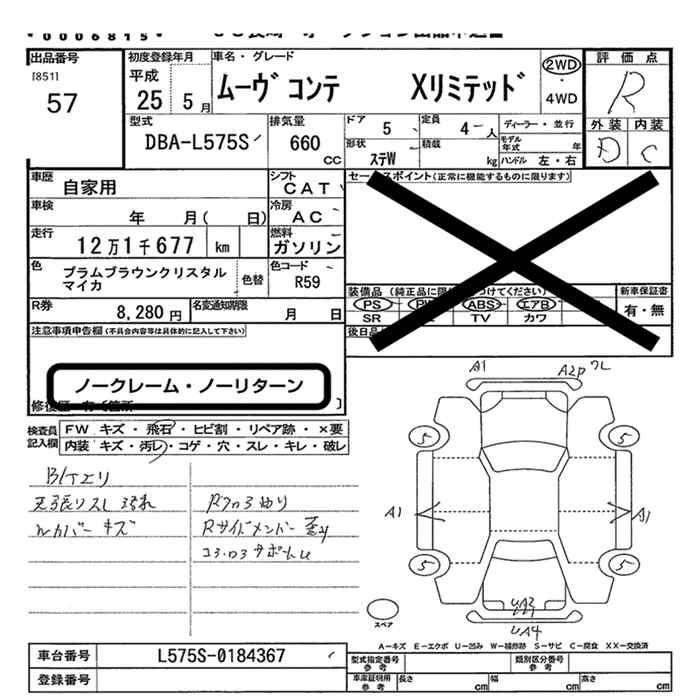 *0006815*
出品番号
[851]
57
初度登録年月
平成
25 5月
車名・グレード
ムーヴ コンテ Xリミテッド
2WD
・
4WD
評価点
R
外装 内装
D C
型式
DBA-L575S
排気量
660
CC
ドア 5
定員 4人
ディーラー・並行
形状
ステW
積載
kg
モデル年式 年
ハンドル 左・右
車歴
自家用
シフト
CAT
車検
年 月( 日)
冷房
AC
走行
12万1千677 km
燃料
ガソリン
色
プラムブラウンクリスタル
マイカ
色替
色コード
R59
R券
8,280円
名変通知期限
月 日
セールスポイント(正常に機能するものに限ります)
装備品
PS ABS エアB
SR TV カワ
新車保証書
有・無
注意事項申告欄(不具合内容等は具体的に記入して下さい)
ノークレーム・ノーリターン
検査員
記入欄
FW キズ・飛石・ヒビ割・リペア跡・×要
内装 キズ・汚レ・コゲ・穴・スレ・キレ・破レ
天張りスレ 汚れ
Wカバー キズ
Rサイドメンバー
コアサポート
A1
A2P
A1
A1
5
5
5
5
UA4
スペア
A-キズ E-エクボ U-凹み W-補修跡 S-サビ C-腐食 XX-交換済
車台番号
L575S-0184367
登録番号
型式指定番号
参考
類別区分番号
参考
車庫証明用
参考
長さ cm
幅 cm
高さ cm